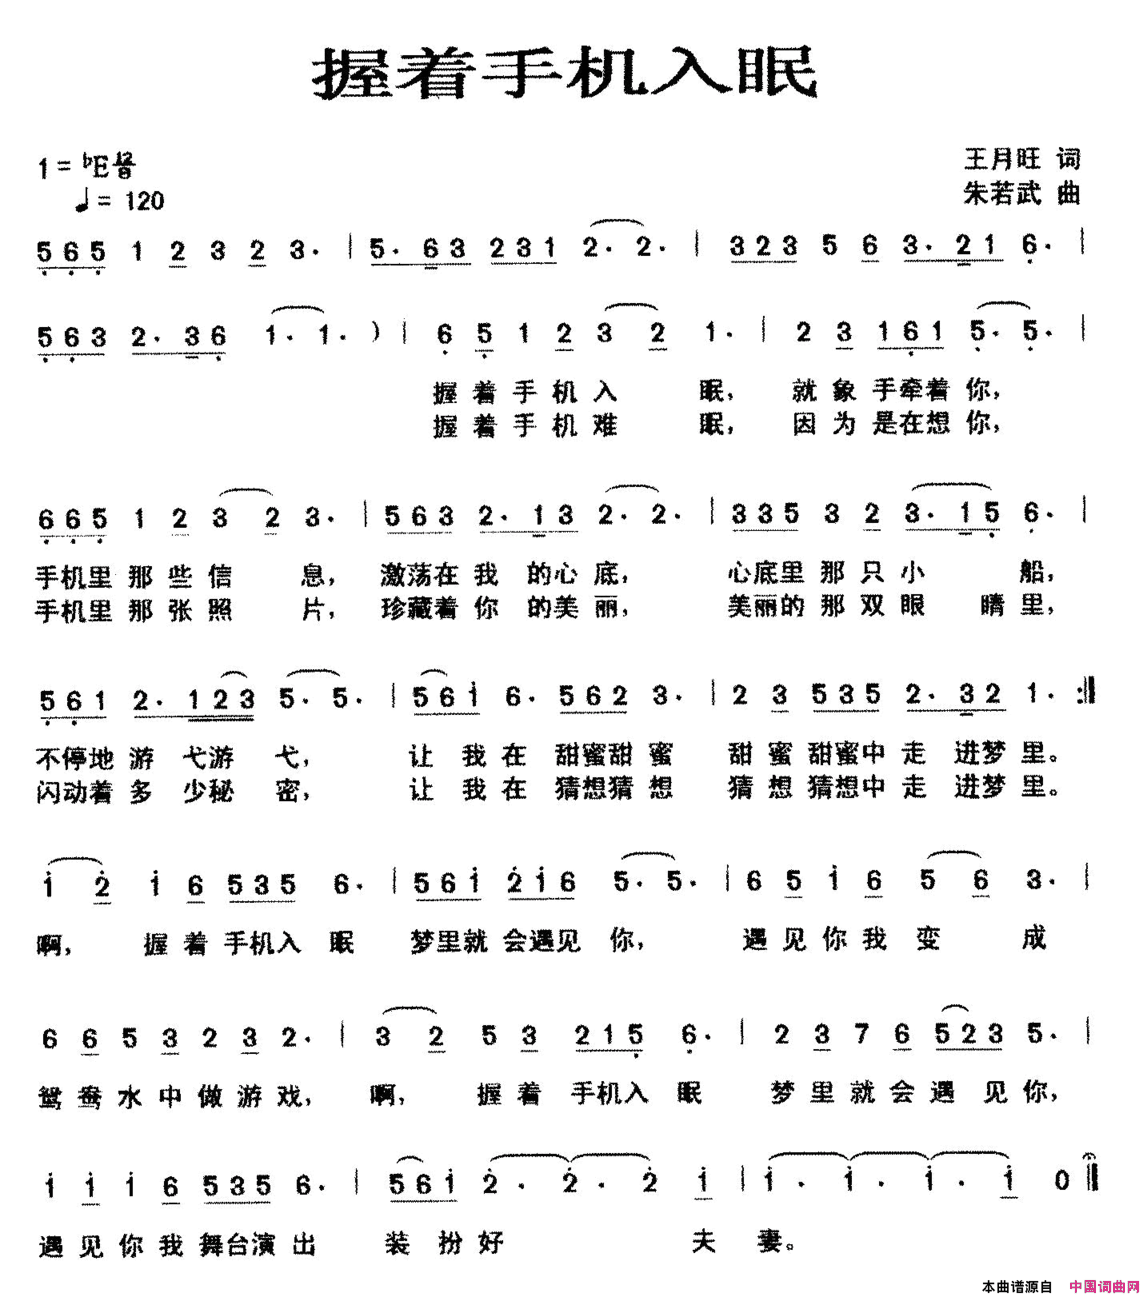 握着手机入眠
1 = ♭E 6/8
♩ = 120
王月旺 词
朱若武 曲
5 6 5 1 2 3 2 3. | 5. 6 3 2 3 1 2. 2. | 3 2 3 5 6 3. 2 1 6. |
5 6 3 2. 3 6 1. 1. ) | 6 5 1 2 3 2 1. | 2 3 1 6 1 5. 5. |
握着手机入眠，就象手牵着你，
握着手机难眠，因为是在想你，
6 6 5 1 2 3 2 3. | 5 6 3 2. 1 3 2. 2. | 3 3 5 3 2 3. 1 5 6. |
手机里那些信息，激荡在我的心底，心底里那只小船，
手机里那张照片，珍藏着你的美丽，美丽的那双眼睛里，
5 6 1 2. 1 2 3 5. 5. | 5 6 1 6. 5 6 2 3. | 2 3 5 3 5 2. 3 2 1. :||
不停地游弋游弋，让我在甜蜜甜蜜甜蜜甜蜜中走进梦里。
闪动着多少秘密，让我在猜想猜想猜想猜想中走进梦里。
1 2 1 6 5 3 5 6. | 5 6 1 2 1 6 5. 5. | 6 5 1 6 5 6 3. |
啊，握着手机入眠梦里就会遇见你，遇见你我变成
6 6 5 3 2 3 2. | 3 2 5 3 2 1 5 6. | 2 3 7 6 5 2 3 5. |
鸳鸯水中做游戏，啊，握着手机入眠梦里就会遇见你，
1 1 1 6 5 3 5 6. | 5 6 1 2. 2. 2 1 | 1. 1. 1. 1 0 ||
遇见你我舞台演出装扮好夫妻。
本曲谱源自 中国词曲网